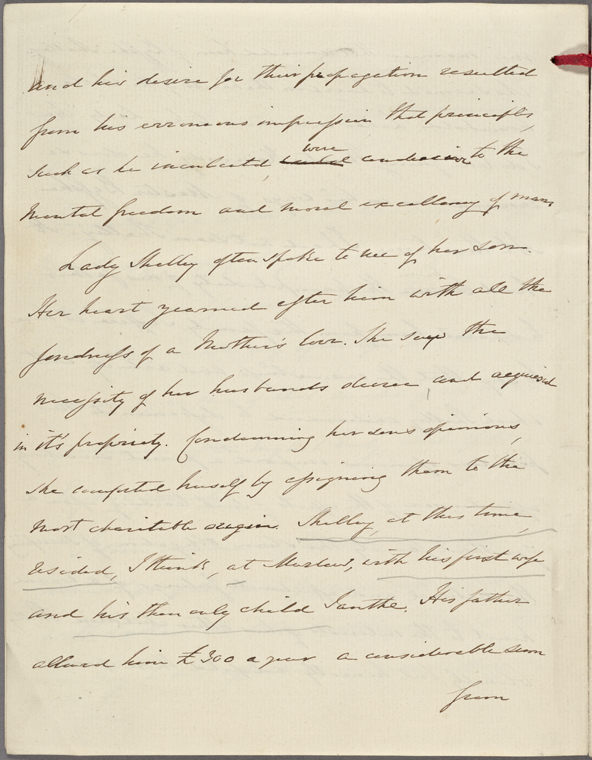 and his desire for their propagation resulted
from his erroneous impression that principles,
such as he inculcated, were conducive to the
mental freedom and moral excellency of man.
Lady Shelley often spoke to me of her son.
Her heart yearned after him with all the
fondness of a Mother's love. She saw the
necessity of her husbands decree, and acquiesced
in it's propriety. Condemning her son's opinions,
she comforted herself by assigning them to the
most charitable origin. Shelley, at this time,
resided, I think, at Marlow, with his first wife
and his then only child Ianthe. His father
allowed him £300 a year a considerable sum
from